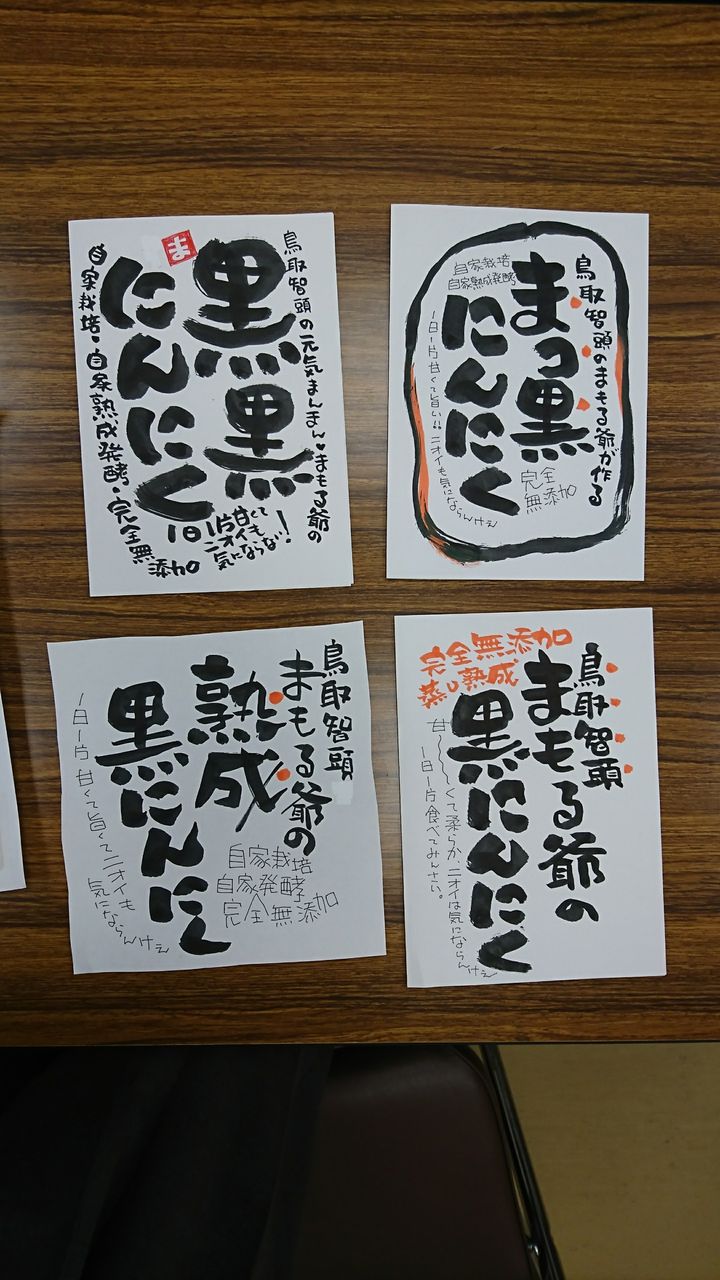 鳥取智頭の元気まんまん♥まもる爺の
黒黒
ま
にんにく
1日1片甘くて
ニオイも
気にならない!
自家栽培・自家熟成発酵・完全無添加
鳥取智頭のまもる爺が作る
まっ黒
にんにく
自家栽培
自家熟成発酵
完全
無添加
1日1片甘くて旨い!!ニオイも気にならんけぇ
鳥取智頭
まもる爺の
熟成
黒にんにく
自家栽培
自家発酵
完全無添加
1日1片甘くて旨くてニオイも
気にならんけぇ
鳥取智頭
まもる爺の
黒にんにく
完全無添加
蒸し熟成
甘〜くて柔らか、ニオイは気にならんけぇ
1日1片食べてみんさい。